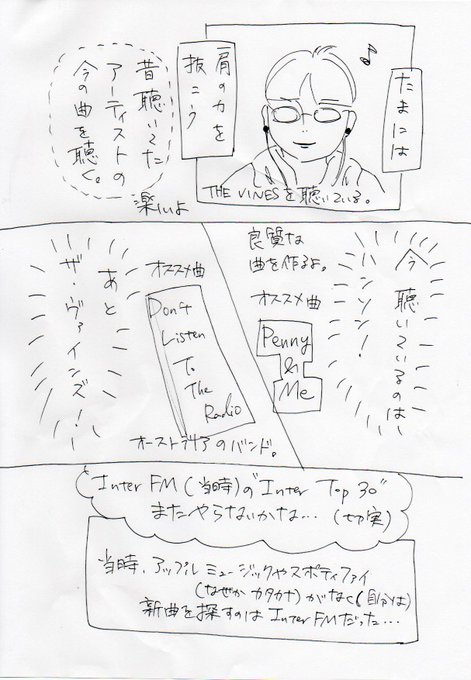 たまには
肩の力を
抜こう
昔聴いてた
アーティストの
今の曲を
聴く。
楽しいよ
THE VINESを聴いている。
今聴いているのは、
ハンソン!
良質な
曲を作るよ。
オススメ曲
Penny
&
Me
あと
ザ・ヴァインズ!
オススメ曲
Don't
Listen
To
The
Radio
オーストラリアのバンド。
"Inter FM(当時)の"Inter Top 30"
またやらないかな…(切実)
当時、アップルミュージックやスポティファイ
(なぜかカタカナ)がなく(自分は)
新曲を探すのはInterFMだった…